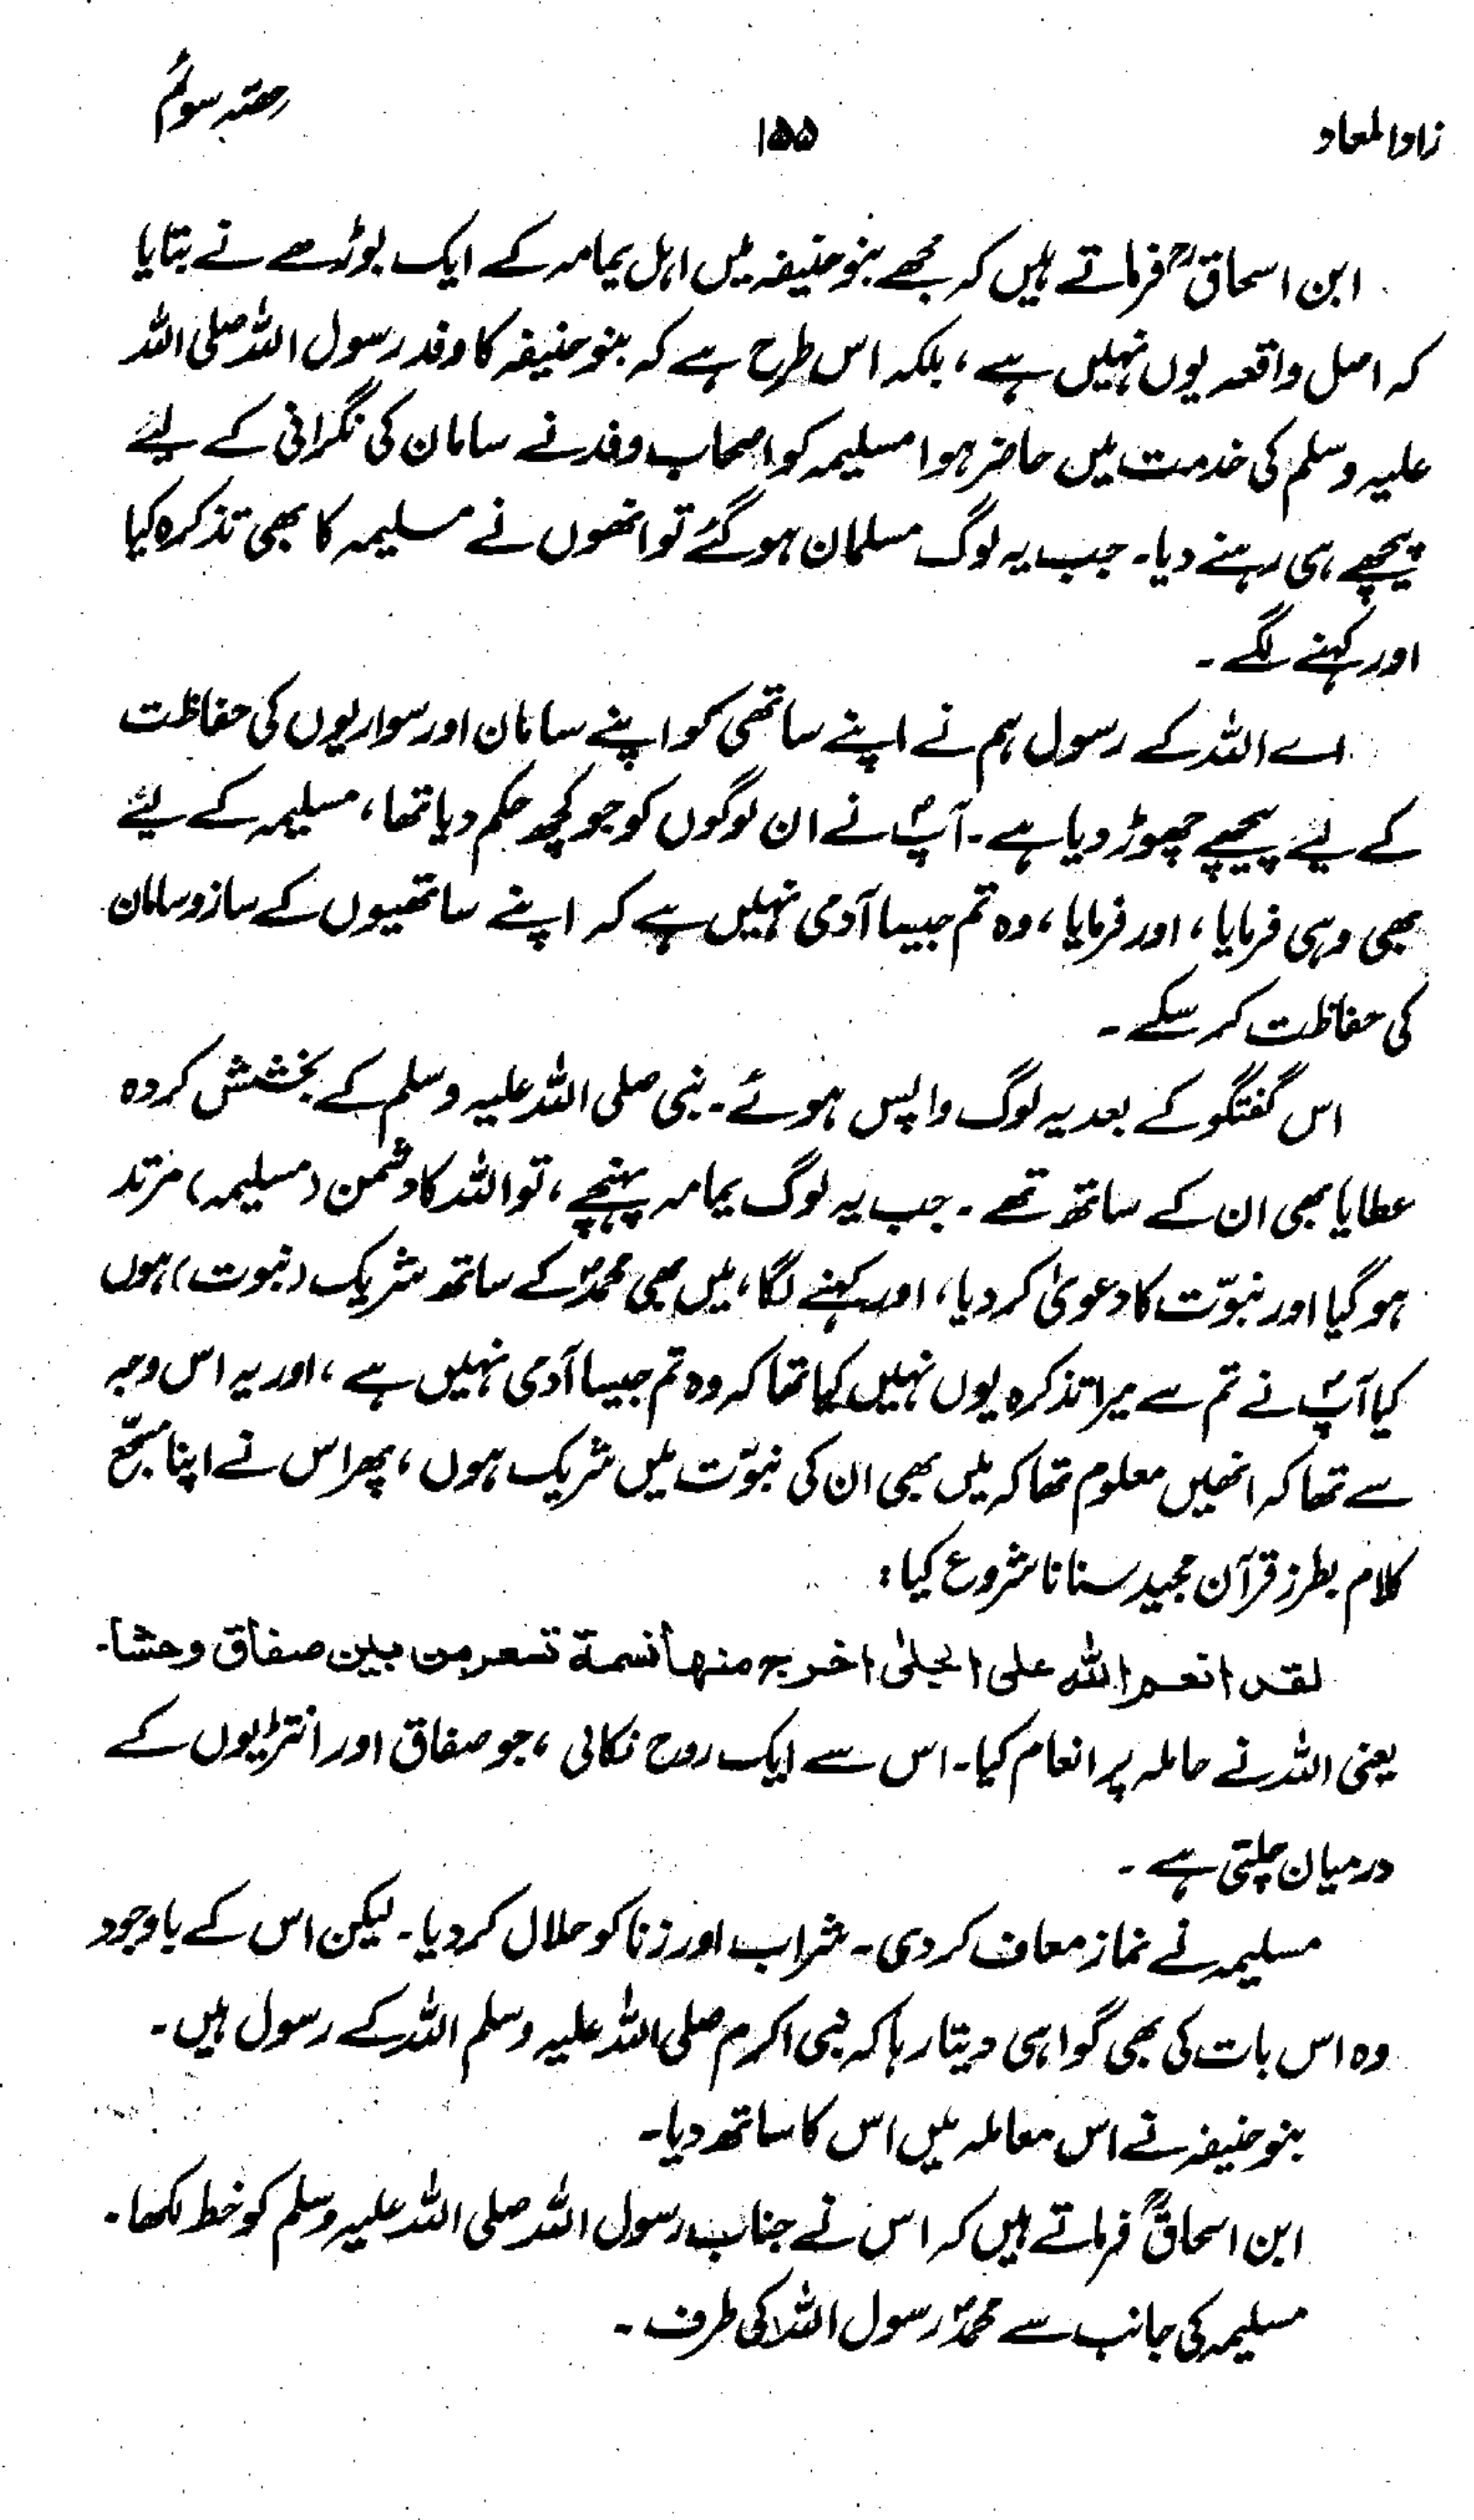 زاد المعاد
۱۵۵
حصّہ سوئم
ابن اسحاقؒ فرماتے ہیں کہ مجھے بنو حنیفہ میں اہل یمامہ کے ایک بوڑھے نے بتایا
کہ اصل واقعہ یوں نہیں ہے ، بلکہ اس طرح ہے کہ بنو حنیفہ کا وفد رسول اللہ صلی اللہ
علیہ وسلم کی خدمت میں حاضر ہوا مسیلمہ کو اصحاب وفد نے سامان کی نگرانی کے لیے
پیچھے ہی رہنے دیا۔ جب یہ لوگ مسلمان ہو گئے تو انھوں نے مسلیمہ کا بھی تذکرہ کیا
اور کہنے لگے ۔
اے اللہ کے رسول ہم نے اپنے ساتھی کو اپنے سامان اور سواریوں کی حفاظت
کے لیے پیچھے چھوڑ دیا ہے ۔ آپؐ نے ان لوگوں کو جو کچھ حکم دیا تھا ، مسلیمہ کے لیے
بھی وہی فرمایا ، اور فرمایا ، وہ تم جیسا آدمی نہیں ہے کہ اپنے ساتھیوں کے ساز و سامان
کی حفاظت کر سکے ۔
اس گفتگو کے بعد یہ لوگ واپس ہوئے ۔ نبی صلی اللہ علیہ وسلم کے بخشش کردہ
عطایا بھی ان کے ساتھ تھے ۔ جب یہ لوگ یمامہ پہنچے ، تو اللہ کا دشمن (مسلیمہ) مرتد
ہو گیا اور نبوّت کا دعویٰ کر دیا ، اور کہنے لگا ، میں بھی محمدؐ کے ساتھ شریک (نبوت) ہوں
کیا آپؐ نے تم سے میرا تذکرہ یوں نہیں کیا تھا کہ وہ تم جیسا آدمی نہیں ہے ، اور یہ اس وجہ
سے تھا کہ انھیں معلوم تھا کہ میں بھی ان کی نبوّت میں شریک ہوں ، پھر اس نے اپنا مسجّع
کلام بطرز قرآن مجید سنانا شروع کیا :
لقد انعم اللہ علی الحبلیٰ اخرج منها نسمة تسعر من بين صفاق وحشا۔
یعنی اللہ نے حاملہ پر انعام کیا۔ اس سے ایک روح نکالی ، جو صفاق اور انتڑیوں کے
درمیان چلتی ہے ۔
مسلیمہ نے نماز معاف کر دی ۔ شراب اور زنا کو حلال کر دیا۔ لیکن اس کے باوجود
وہ اس بات کی بھی گواہی دیتا رہا کہ نبی اکرم صلی اللہ علیہ وسلم اللہ کے رسول ہیں ۔
بنو حنیفہ نے اس معاملہ میں اس کا ساتھ دیا۔
ابن اسحاقؒ فرماتے ہیں کہ اس نے جناب رسول اللہ صلی اللہ علیہ وسلم کو خط لکھا۔
مسیلمہ کی جانب سے محمدؐ رسول اللہ کی طرف ۔